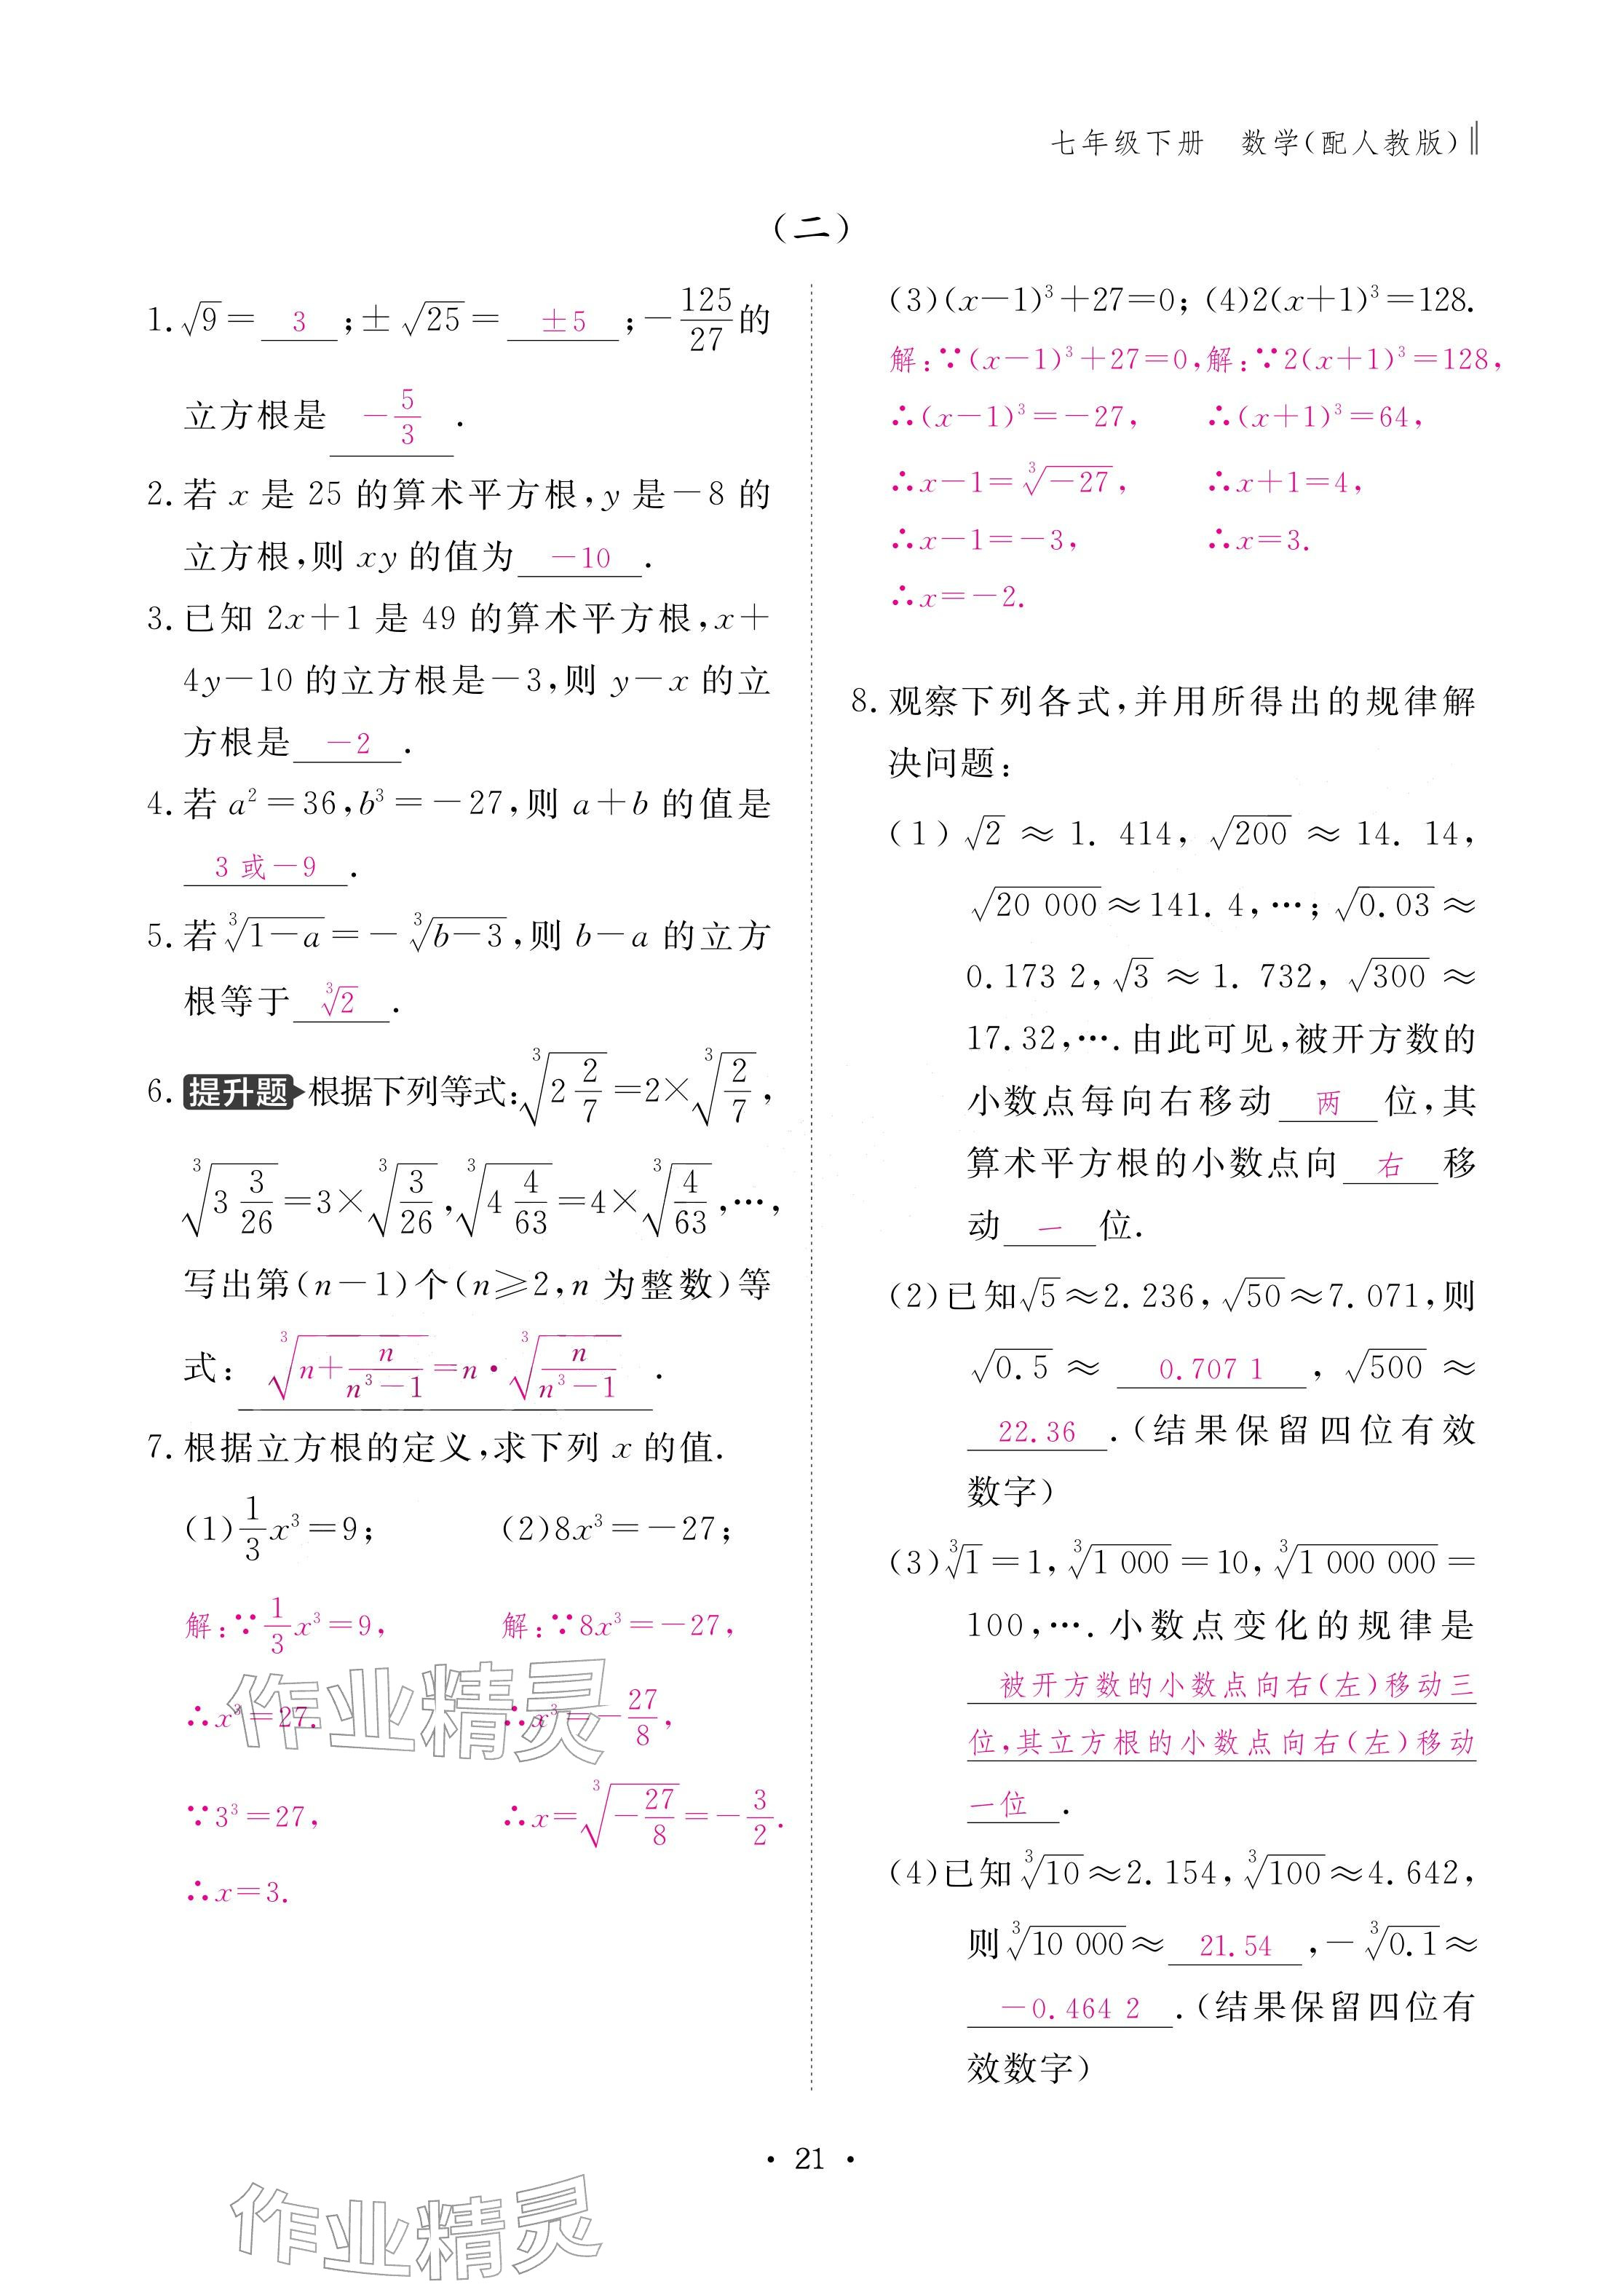 七年级下册　数学(配人教版)
(二)
1. √9 = 3 ;± √25 = ±5 ;−125/27 的
立方根是 −5/3 .
2. 若 x 是 25 的算术平方根,y 是−8 的
立方根,则 xy 的值为 −10 .
3. 已知 2x+1 是 49 的算术平方根,x+
4y−10 的立方根是−3,则 y−x 的立
方根是 −2 .
4. 若 a²=36,b³=−27,则 a+b 的值是
3 或−9 .
5. 若 ∛(1−a) = − ∛(b−3) ,则 b−a 的立方
根等于 ∛2 .
6. 提升题 根据下列等式: ∛(2 2/7) =2× ∛(2/7) ,
∛(3 3/26) =3× ∛(3/26) , ∛(4 4/63) =4× ∛(4/63) ,…,
写出第(n−1)个(n⩾2,n 为整数)等
式: ∛(n+n/(n³−1)) =n· ∛(n/(n³−1)) .
7. 根据立方根的定义,求下列 x 的值.
(1) 1/3 x³=9;　(2)8x³=−27;
解:∵ 1/3 x³=9,　解:∵8x³=−27,
∴x³=27.　∴x³=−27/8,
∵3³=27,　∴x= ∛(−27/8) =−3/2.
∴x=3.
(3)(x−1)³+27=0; (4)2(x+1)³=128.
解:∵(x−1)³+27=0,解:∵2(x+1)³=128,
∴(x−1)³=−27,　∴(x+1)³=64,
∴x−1= ∛−27 ,　∴x+1=4,
∴x−1=−3,　∴x=3.
∴x=−2.
8. 观察下列各式,并用所得出的规律解
决问题:
(1) √2 ≈ 1. 414, √200 ≈ 14. 14,
√20 000 ≈141. 4,…; √0. 03 ≈
0. 173 2, √3 ≈ 1. 732, √300 ≈
17. 32,…. 由此可见,被开方数的
小数点每向右移动 两 位,其
算术平方根的小数点向 右 移
动 一 位.
(2)已知√5 ≈2. 236, √50 ≈7. 071,则
√0. 5 ≈ 0. 707 1 , √500 ≈
22. 36 .(结果保留四位有效
数字)
(3) ∛1 =1, ∛1 000 =10, ∛1 000 000 =
100,…. 小数点变化的规律是
被开方数的小数点向右(左)移动三
位,其立方根的小数点向右(左)移动
一位 .
(4)已知 ∛10 ≈2. 154, ∛100 ≈4. 642,
则 ∛10 000 ≈ 21. 54 ,− ∛0. 1 ≈
−0. 464 2 .(结果保留四位有
效数字)
作业精灵
• 21 •
作业精灵